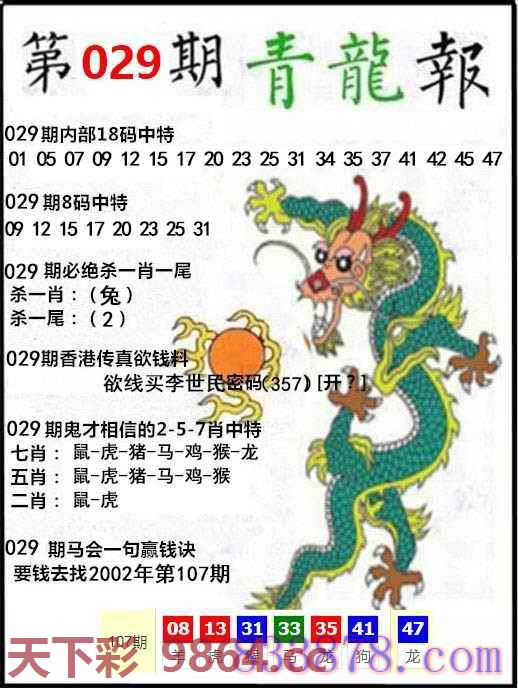 第029期青龍報
029期内部18码中特
01 05 07 09 12 15 17 20 23 25 31 34 35 37 41 42 45 47
029期8码中特
09 12 15 17 20 23 25 31
029期必绝杀一肖一尾
杀一肖：(兔)
杀一尾：(2)
029期香港传真欲钱料
欲线买李世民密码(357)[开?]
029期鬼才相信的2-5-7肖中特
七肖：鼠-虎-猪-马-鸡-猴-龙
五肖：鼠-虎-猪-马-鸡-猴
二肖：鼠-虎
029 期马会一句赢钱诀
要钱去找2002年第107期
107期 08 13 31 33 35 41 47
羊 虎 马 龙 狗 龙
天下彩 9864.cc